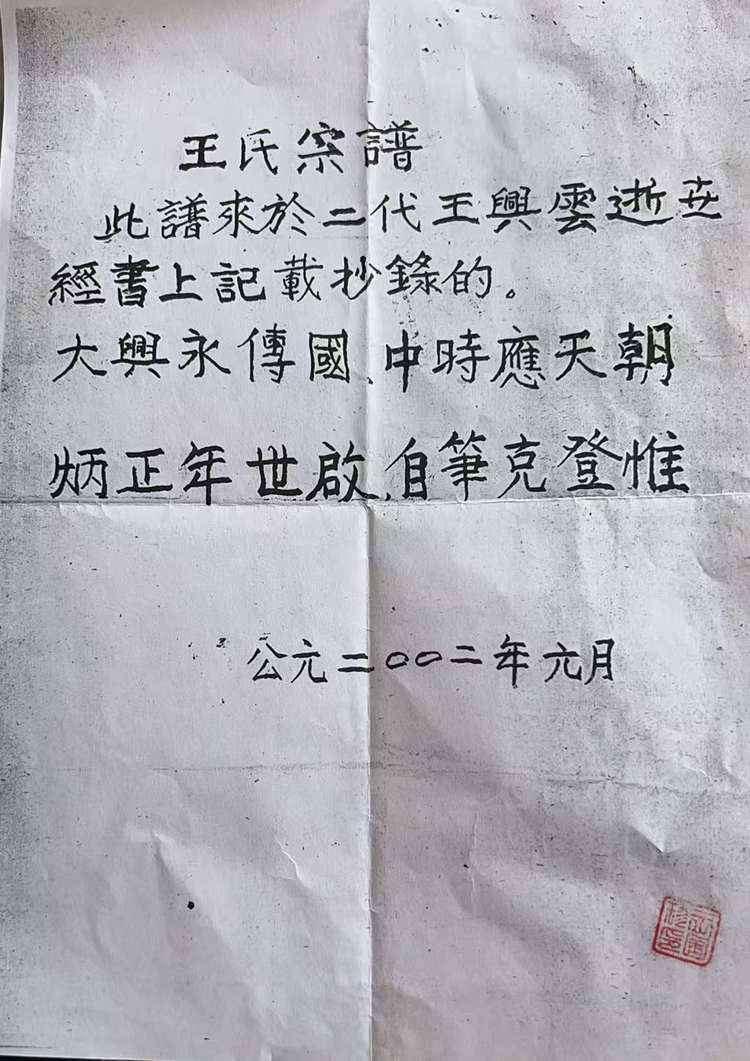 王氏宗譜
此譜來於二代王興雲逝世
經書上記載抄錄的。
大興永傳國、中時應天朝
炳正年世啟、自筆克登惟
公元二〇〇二年六月